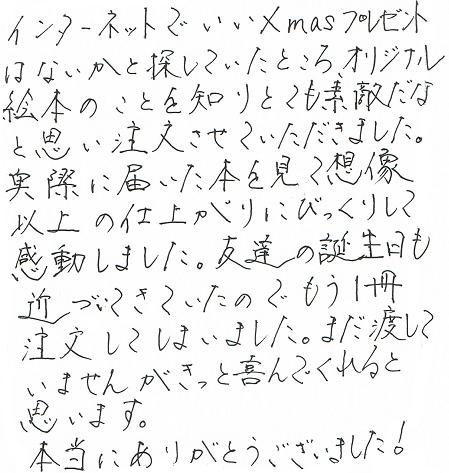 インターネットでいいXmasプレゼント
はないかと探していたところ、オリジナル
絵本のことを知りとても素敵だな
と思い注文させていただきました。
実際に届いた本を見て想像
以上の仕上がりにびっくりして
感動しました。友達の誕生日も
近づいてきていたのでもう1冊
注文してしまいました。まだ渡して
いませんがきっと喜んでくれると
思います。
本当にありがとうございました!